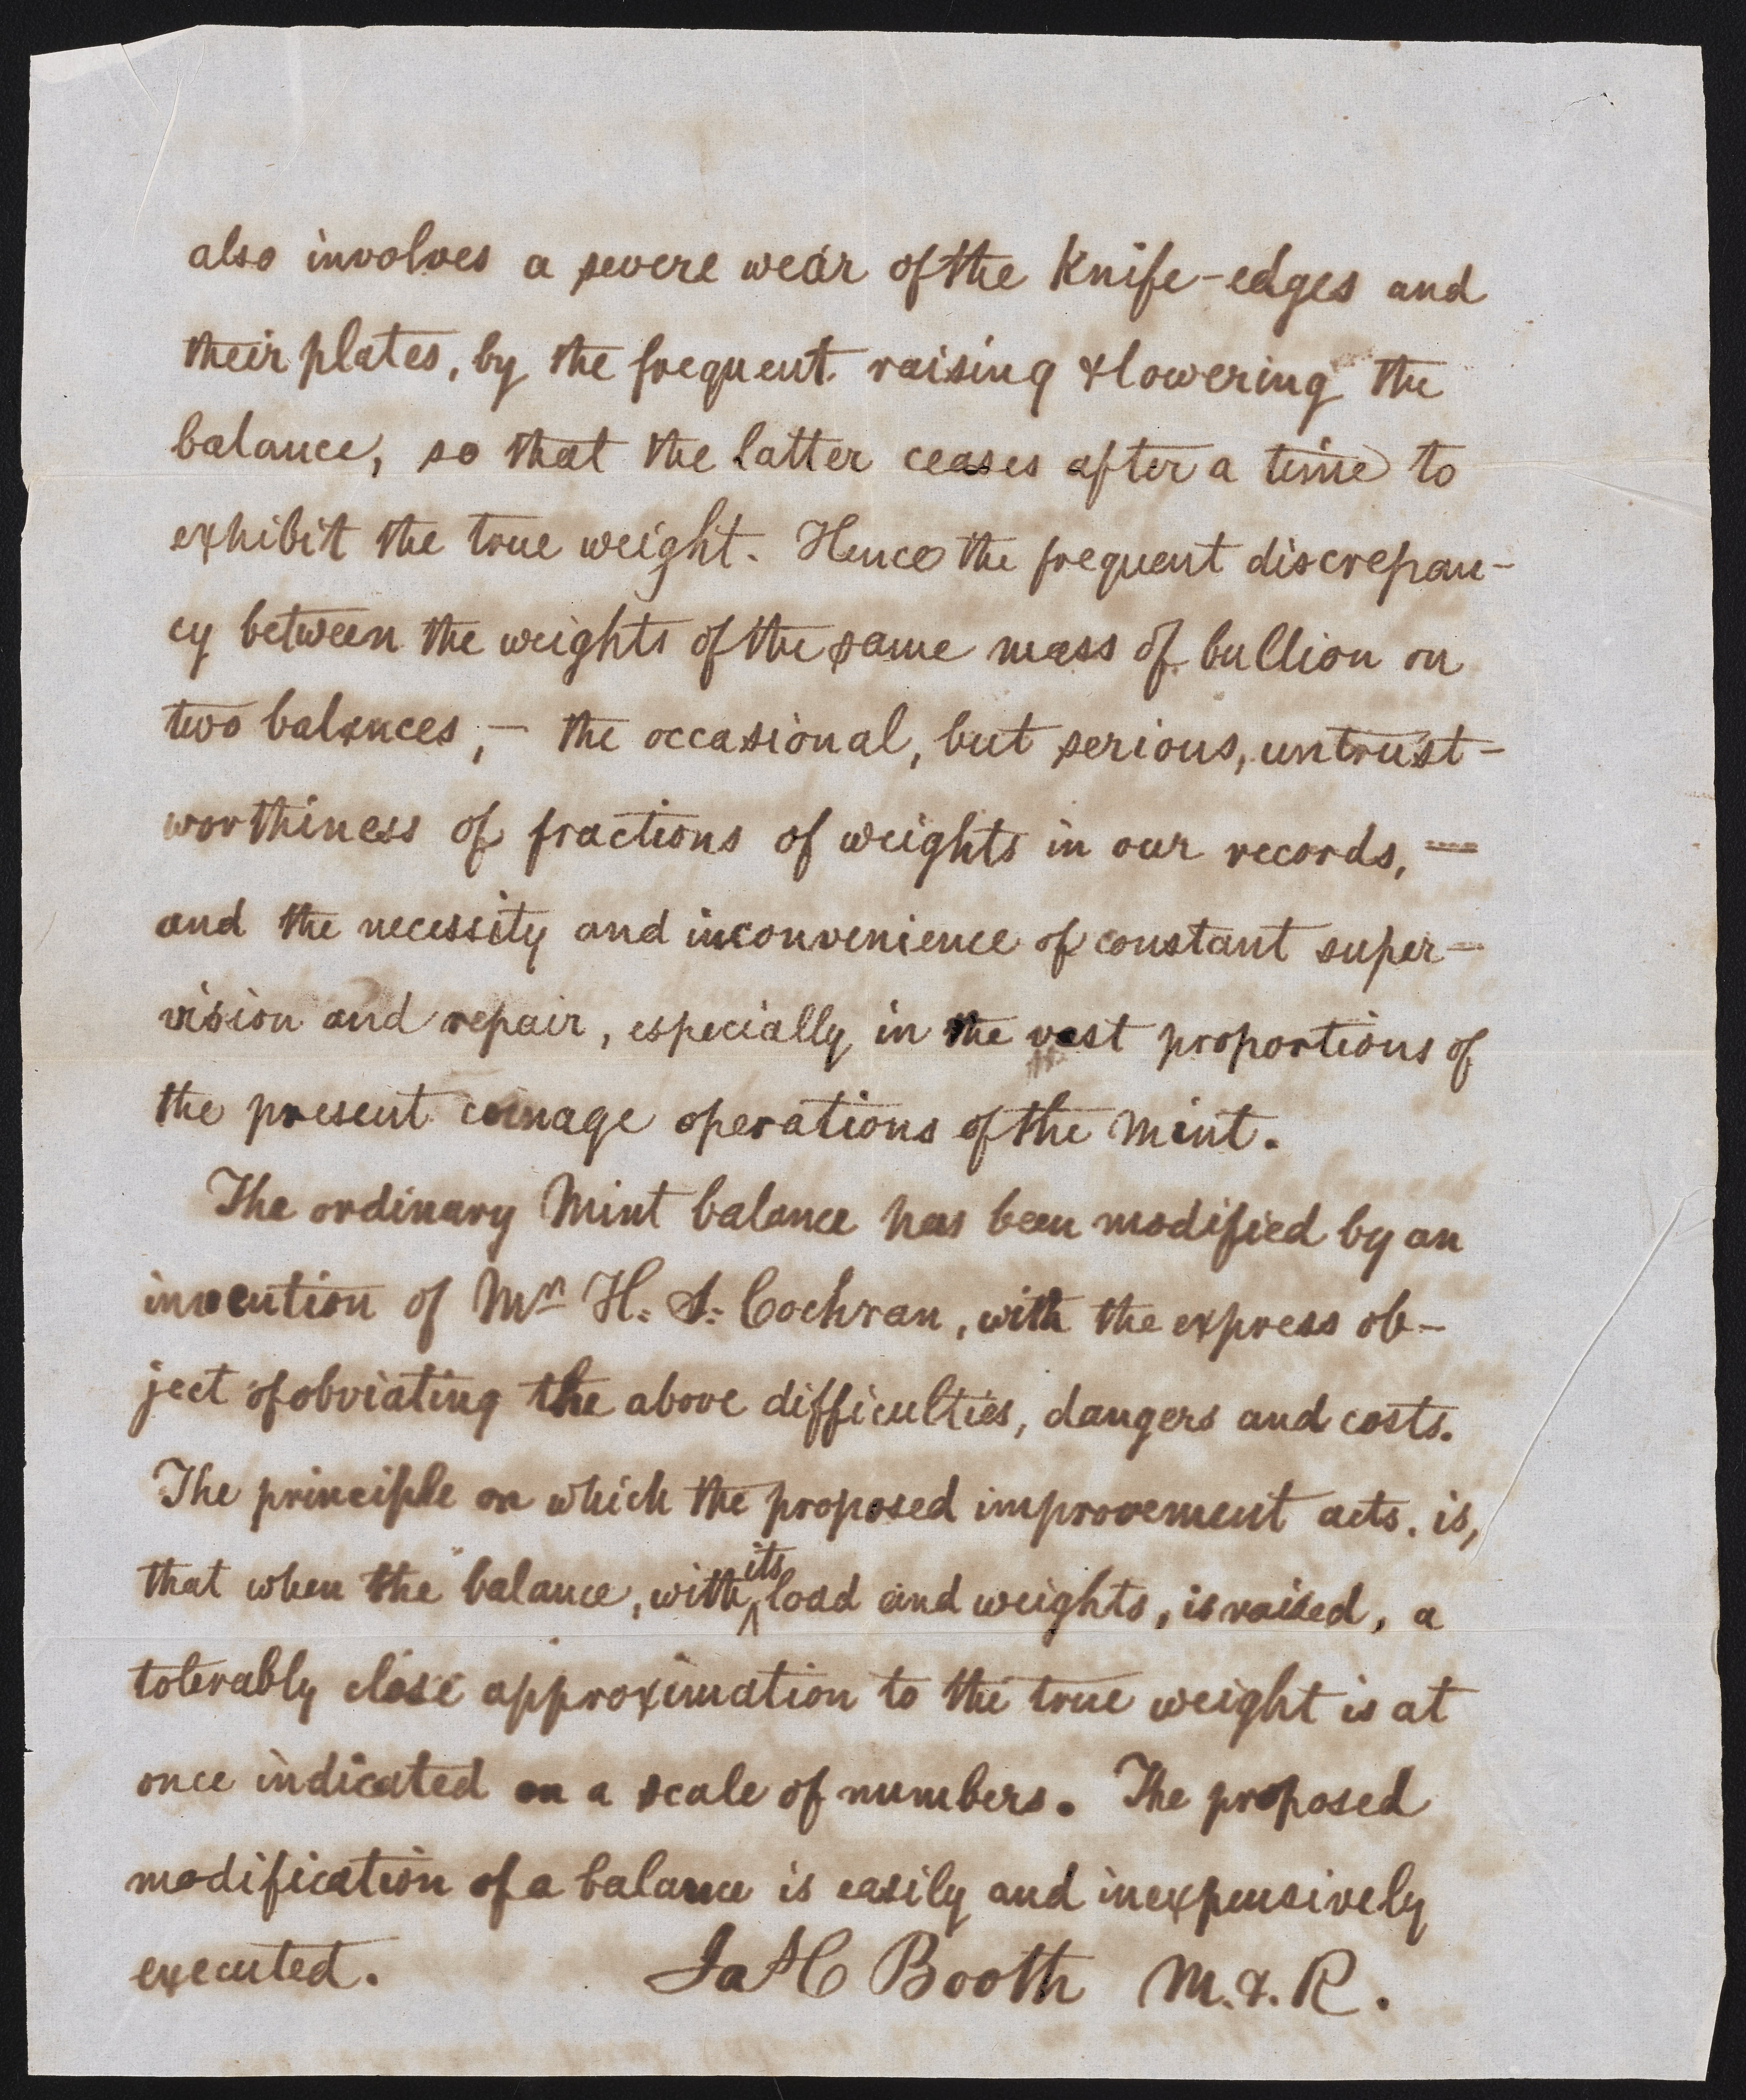 also involves a severe wear of the knife-edges and
their plates, by the frequent raising & lowering the
balance, so that the latter ceases after a time to
exhibit the true weight. Hence the frequent discrepan-
cy between the weights of the same mass of bullion on
two balances, — the occasional, but serious, untrust-
worthiness of fractions of weights in our records, —
and the necessity and inconvenience of constant super-
vision and repair, especially in the vast proportions of
the present coinage operations of the Mint.
The ordinary Mint balance has been modified by an
invention of Mr H. S. Cochran, with the express ob-
ject of obviating the above difficulties, dangers and costs.
The principle on which the proposed improvement acts, is,
that when the balance, with its load and weights, is raised, a
tolerably close approximation to the true weight is at
once indicated on a scale of numbers. The proposed
modification of a balance is easily and inexpensively
executed. Ja C Booth M. & R.